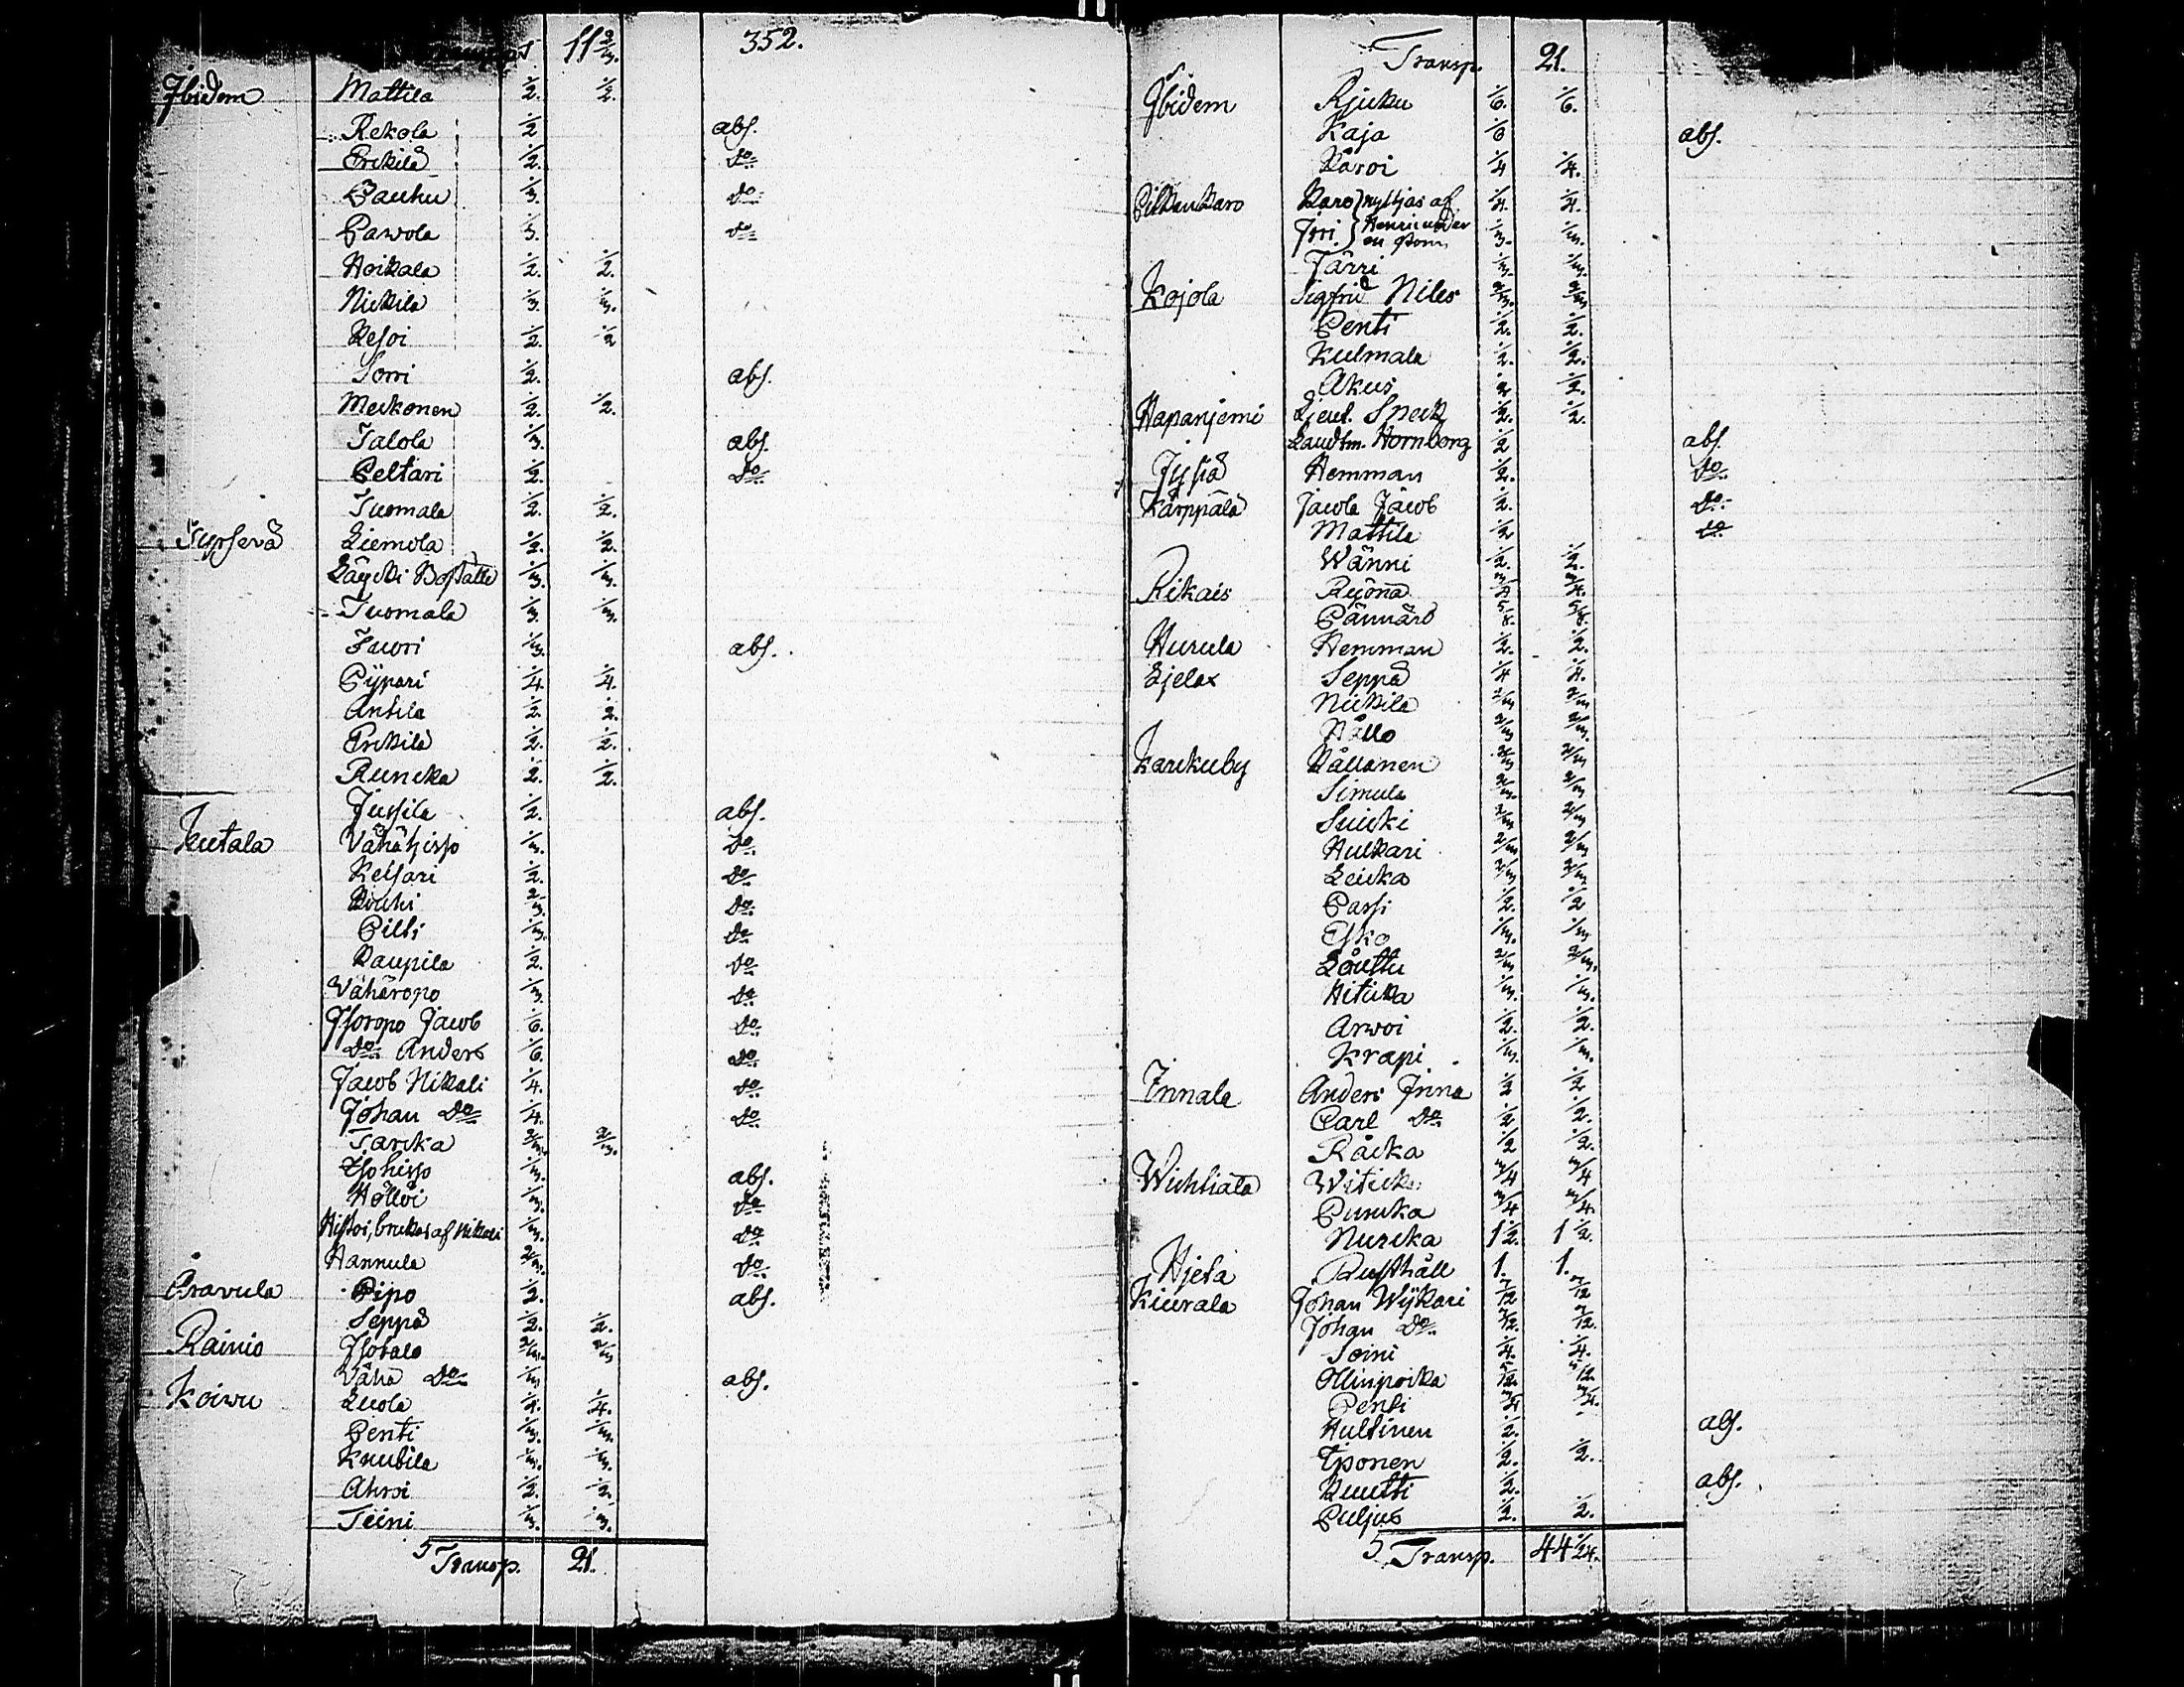 Transp. 11 2/3. 352.
Ibidem Mattila 1/2. 1/2.
Rekola 1/2 abs.
Erkilä 1/2. Do
Pauhu 1/3. Do
Pawola 1/3. Do
Hoikala 1/2. 1/2.
Nickila 1/3. 1/3.
Kesoi 1/2. 1/2
Sorri 1/2. abs.
Meckonen 1/2. 1/2.
Talola 1/3. abs.
Peltari 1/2. Do
Tuomala 1/2. 1/2.
Liemola 1/2. 1/2.
1/3. 1/3.
Tuomala 1/3. 1/3.
Juori 1/3. abs.
Pÿpari 1/4. 1/4.
Antila 1/2. 1/2.
Erkilä 1/2. 1/2.
Runcka 1/2. 1/2.
Jussila 1/2. abs.
Kutala Vähähisso 1/3. Do
Kelsari 1/2. Do
Kouhi 2/3. Do
Pilti 1/3. Do
Kaupila 1/2. Do
Vähäropo 1/3. Do
Isoropo Jacob 1/6. Do
Do Anders 1/6. Do
Jacob Nikali 1/4. Do
Johan Do 1/4. Do
Tarcka 2/3. 2/3.
Isohisso 1/3. abs.
Hölloi 1/3. Do
brukas af Nikali 1/3. Do
Hannula 2/3. Do
Aravula Pipo 1/2. abs.
Seppä 1/2. 1/2.
Rainio Isotalo 2/3. 2/3
Vähä Do 1/3 abs.
Koivu Luola 1/4. 1/4.
Penti 1/3. 1/3.
Knubila 1/3. 1/3.
Ahroi 1/2. 1/2.
Teini 1/3. 1/3.
Transp. 21.
Transp. 21.
Ibidem Rjucku 1/6. 1/6.
Kaja 1/6 abs.
Käroi 1/4 1/4.
Pilkankaro Karo nyttjas af 1/4. 1/4.
Jrri. Henric under en Rom. 1/3. 1/3.
Järri 1/3. 1/3.
Kojola Sigfrid Niles 2/3. 2/3
Penti 1/2. 1/2.
Kulmala 1/2. 1/2.
Akus 1/2 1/2.
Hapanjemi Ljeut. Sneck 1/2. 1/2.
Landtm. Hornborg 1/2 abs.
Jysiä Hemman 1/2. Do
Kärppälä Jacola Jacob 1/2. Do
Mattila 1/2 Do
Wänni 1/2. 1/2.
Rikais Rijona 3/4 3/4.
Pännärö 5/8. 5/8.
Hurula Hemman 1/2. 1/2.
Ljelax Seppä 1/4 1/4.
Nickila 2/3 2/3
Källo 2/3 2/3.
Karkuby Källanen 2/3 2/3
Simula 2/3. 2/3
Suicki 2/3 2/3
Hulkari 2/3 2/3
Leicka 2/3 2/3
Passi 1/2. 1/2
Esko 1/3. 1/3
Louttu 2/3 2/3.
Hiticka 1/3. 1/3.
Arwoi 1/2. 1/2.
Krapi 1/3. 1/3.
Innala Anders Inna 1/2 1/2
Carl Do 1/2 1/2.
Räcka 1/2 1/2.
Wichliälä Witicka 3/4 3/4
Puncka 3/4 3/4.
Nurcka 1 1/2. 1 1/2.
Hjeta Rusthåll 1. 1.
Kiurala Johan Wijkari 7/12 7/12
Johan Do 7/12. 7/12.
Soini 1/4. 1/4.
Ollinpoika 5/12. 5/12.
Penti 3/4 3/4.
Hultinen 1/2. abs.
Iponen 1/2. 1/2.
Kuutti 1/2. abs.
Puljus 1/2. 1/2.
Transp. 44 1/24.